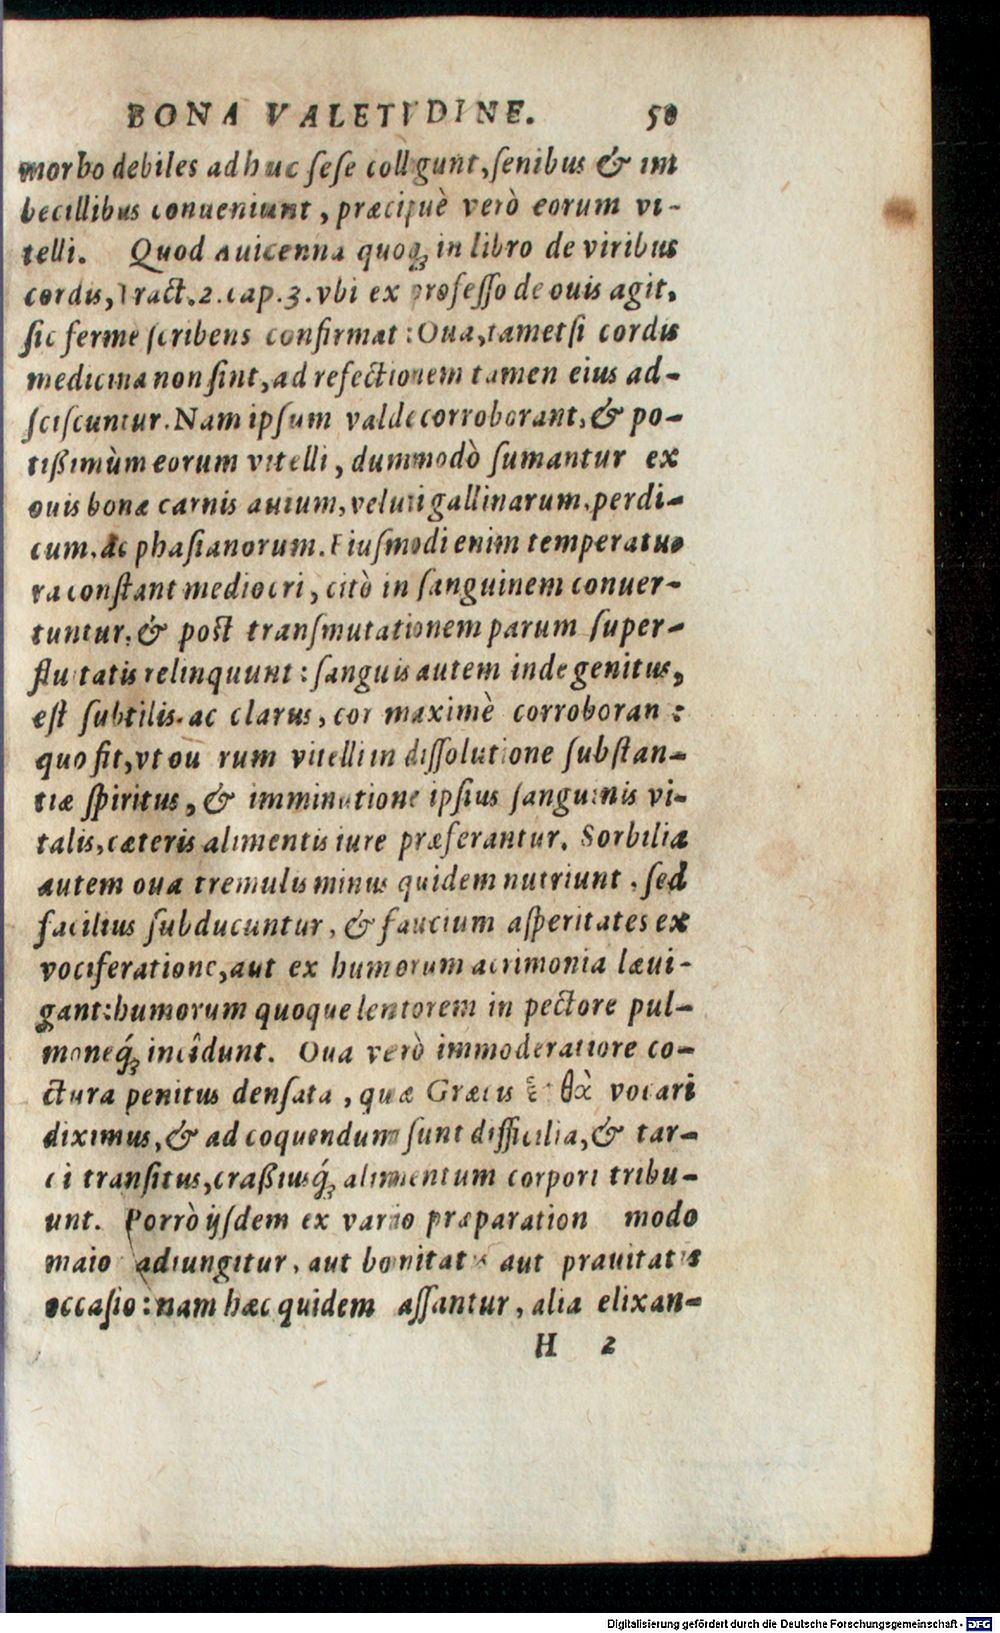 BONA VALETVDINE. 58
morbo debiles adhuc sese colligunt, senibus & im
becillibus conueniunt, præcipuè verò eorum vi-
telli. Quod Auicenna quoq́; in libro de viribus
cordis, Tract. 2. cap. 3. vbi ex professo de ouis agit,
sic fermè scribens confirmat: Oua, tametsi cordis
medicina non sint, ad refectionem tamen eius ad-
sciscuntur. Nam ipsum valde corroborant, & po-
tißimùm eorum vitelli, dummodò sumantur ex
ouis bonæ carnis auium, veluti gallinarum, perdi-
cum, ac phasianorum. Eiusmodi enim temperatu-
ra constant mediocri, citò in sanguinem conuer-
tuntur, & post transmutationem parum super-
fluitatis relinquunt: sanguis autem inde genitus,
est subtilis, ac clarus, cor maximè corroborans:
quo fit, vt ouorum vitelli in dissolutione substan-
tiæ spiritus, & imminutione ipsius sanguinis vi-
talis, cæteris alimentis iure præferantur. Sorbilia
autem oua tremulis minus quidem nutriunt, sed
facilius subducuntur, & faucium asperitates ex
vociferatione, aut ex humorum acrimonia læui-
gant: humorum quoque lentorem in pectore pul-
moneq́; incîdunt. Oua verò immoderatiore co-
ctura penitus densata, quæ Græcis ἑφθὰ vocari
diximus, & ad coquendum sunt difficilia, & tar-
di transitus, craßiusq́; alimentum corpori tribu-
unt. Porrò ijsdem ex vario præparationis modo
maior adiungitur, aut bonitatis aut prauitatis
occasio: nam hæc quidem assantur, alia elixan-
H 2
Digitalisierung gefördert durch die Deutsche Forschungsgemeinschaft - DFG